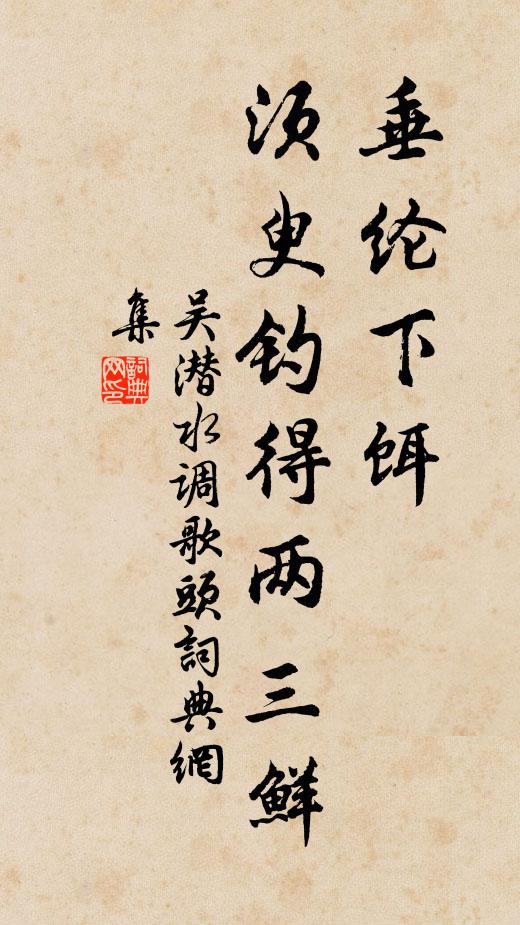 垂纶下饵
须臾钓得两三鲜
吴潜水调歌头詞典網
集
詞典
网印